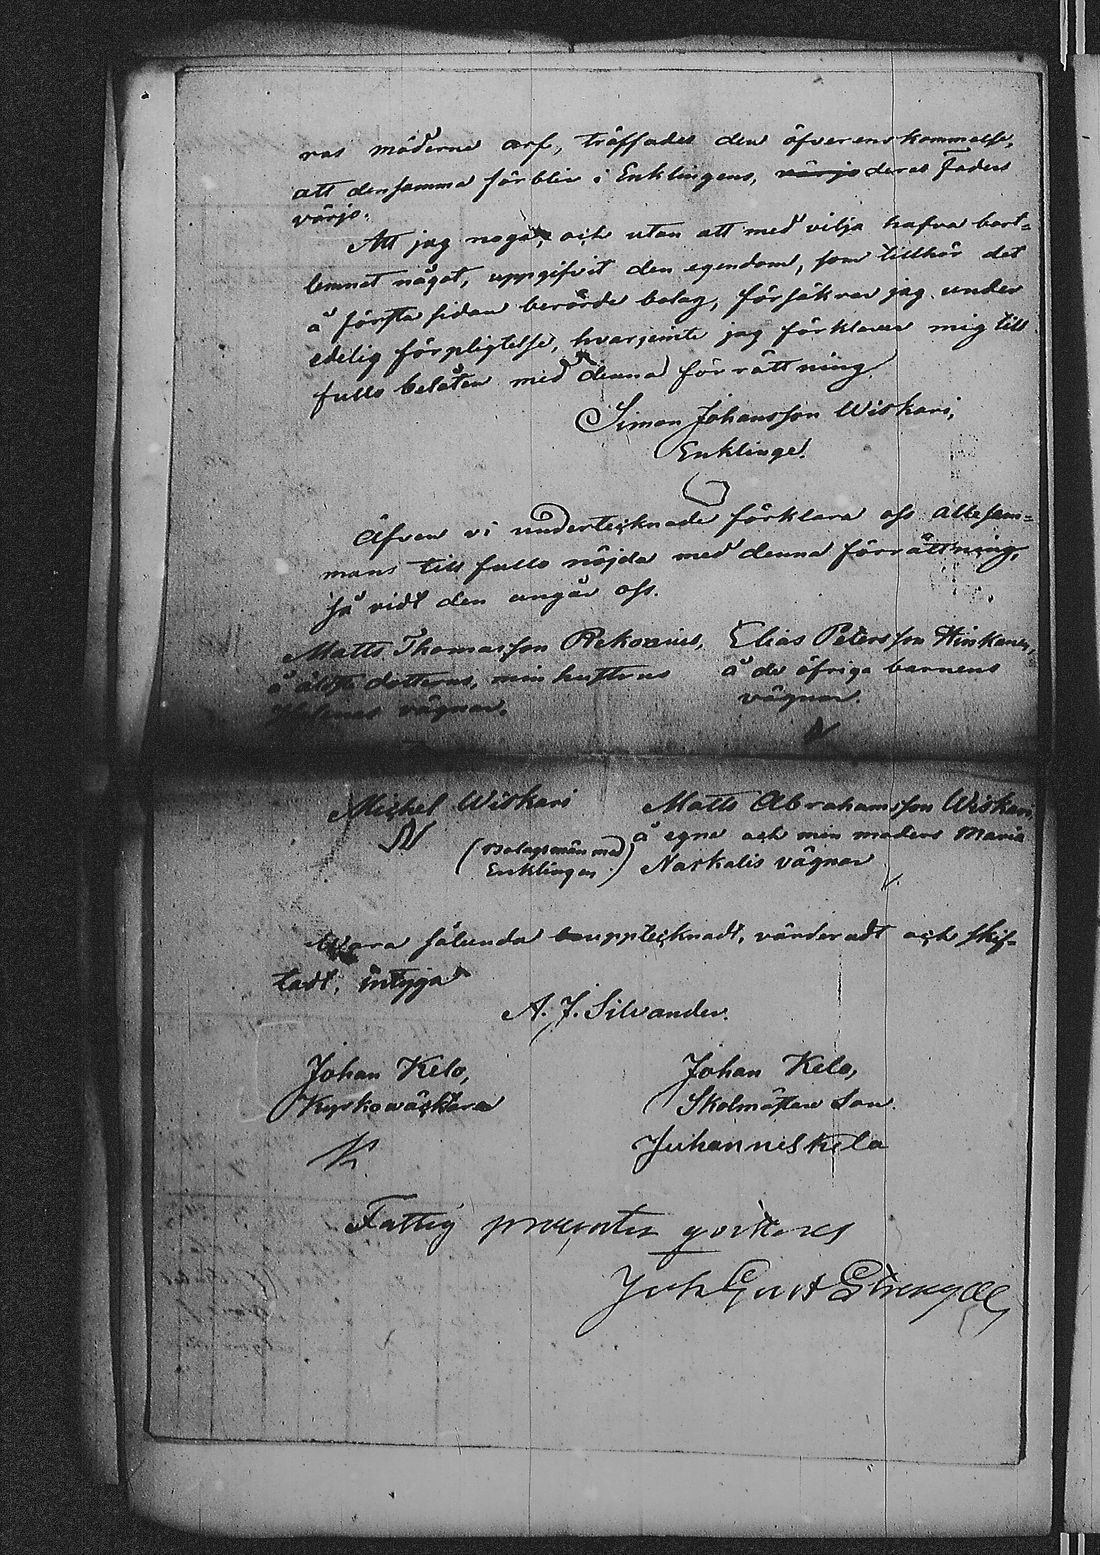 ras möderne arf, träffades den öfverenskommelse,
att densamma förblir i Enklingens, värjo deras Faders
värjo.
Att jag noga, och utan att med vilja hafva bort=
lemnat något, uppgifvit den egendom, som tillhör det
å första sidan berörde bolag, försäkrar jag under
edelig förpligtelse, hvarjemte jag förklarar mig till
fullo belåten med denna förrättning
Simon Johansson Wiskari,
Enklinge.
Äfven vi undertecknade förklara oss allesam=
mans till fullo nöjda med denna förrättning,
så vidt den angår oss.
Matts Thomasson Rekonius, Elias Petersson
å äldsta dotterns, min hustrus å de öfriga barnens
Helenas vägnar. vägnar.
Michel Wiskari Matts Abrahamsson Wiskari,
(Bolagsmän med Enklingen) å egna och min moders Maria
Naskalis vägnar
Wara sålunda upptecknadt, värderadt och skif=
tadt, intyga
A. J. Silvander.
Johan Kelo, Johan Kela,
Kyrkowäktare Skolmästare Son.
Juhannes kela
Fattig procenten qvitteras